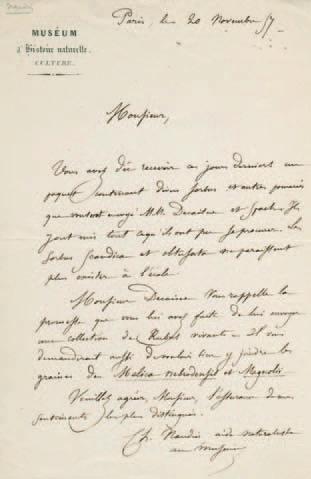 Naudin
Paris, le 20 Novembre 57
MUSÉUM
d'Histoire naturelle.
CULTURE.
Monsieur,
Vous avez dû recevoir ces jours derniers un
paquet contenant divers Sorbus et autres pomacées
que vous ont envoyé M.M. Decaisne et Spach. Ils
y ont mis tout ce qu'ils ont pu se procurer. Les
Sorbus Scandica et obtusata ne paraissent
plus exister à l'école.
Monsieur Decaisne vous rappelle la
promesse que vous lui avez faite de lui envoyer
une collection de Rubus vivants. Il vous
demanderait aussi de vouloir bien y joindre les
graines des Melica nebrodensis et Magnolii
Veuillez agréer, Monsieur, l'assurance de mes
sentiments les plus distingués.
Ch. Naudin, aide naturaliste
au muséum